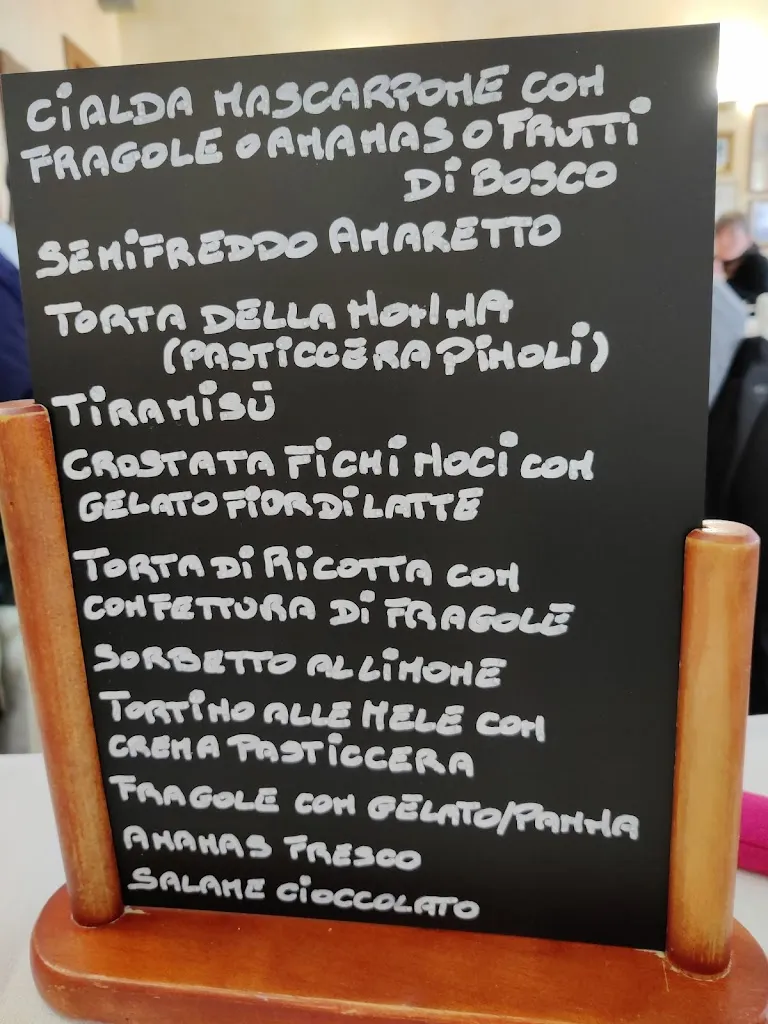 CIALDA MASCARPONE CON
FRAGOLE O ANANAS O FRUTTI
DI BOSCO
SEMIFREDDO AMARETTO
TORTA DELLA NONNA
(PASTICCERA PINOLI)
TIRAMISÙ
CROSTATA FICHI NOCI CON
GELATO FIORDILATTE
TORTA DI RICOTTA CON
CONFETTURA DI FRAGOLE
SORBETTO AL LIMONE
TORTINO ALLE MELE CON
CREMA PASTICCERA
FRAGOLE CON GELATO/PANNA
ANANAS FRESCO
SALAME CIOCCOLATO